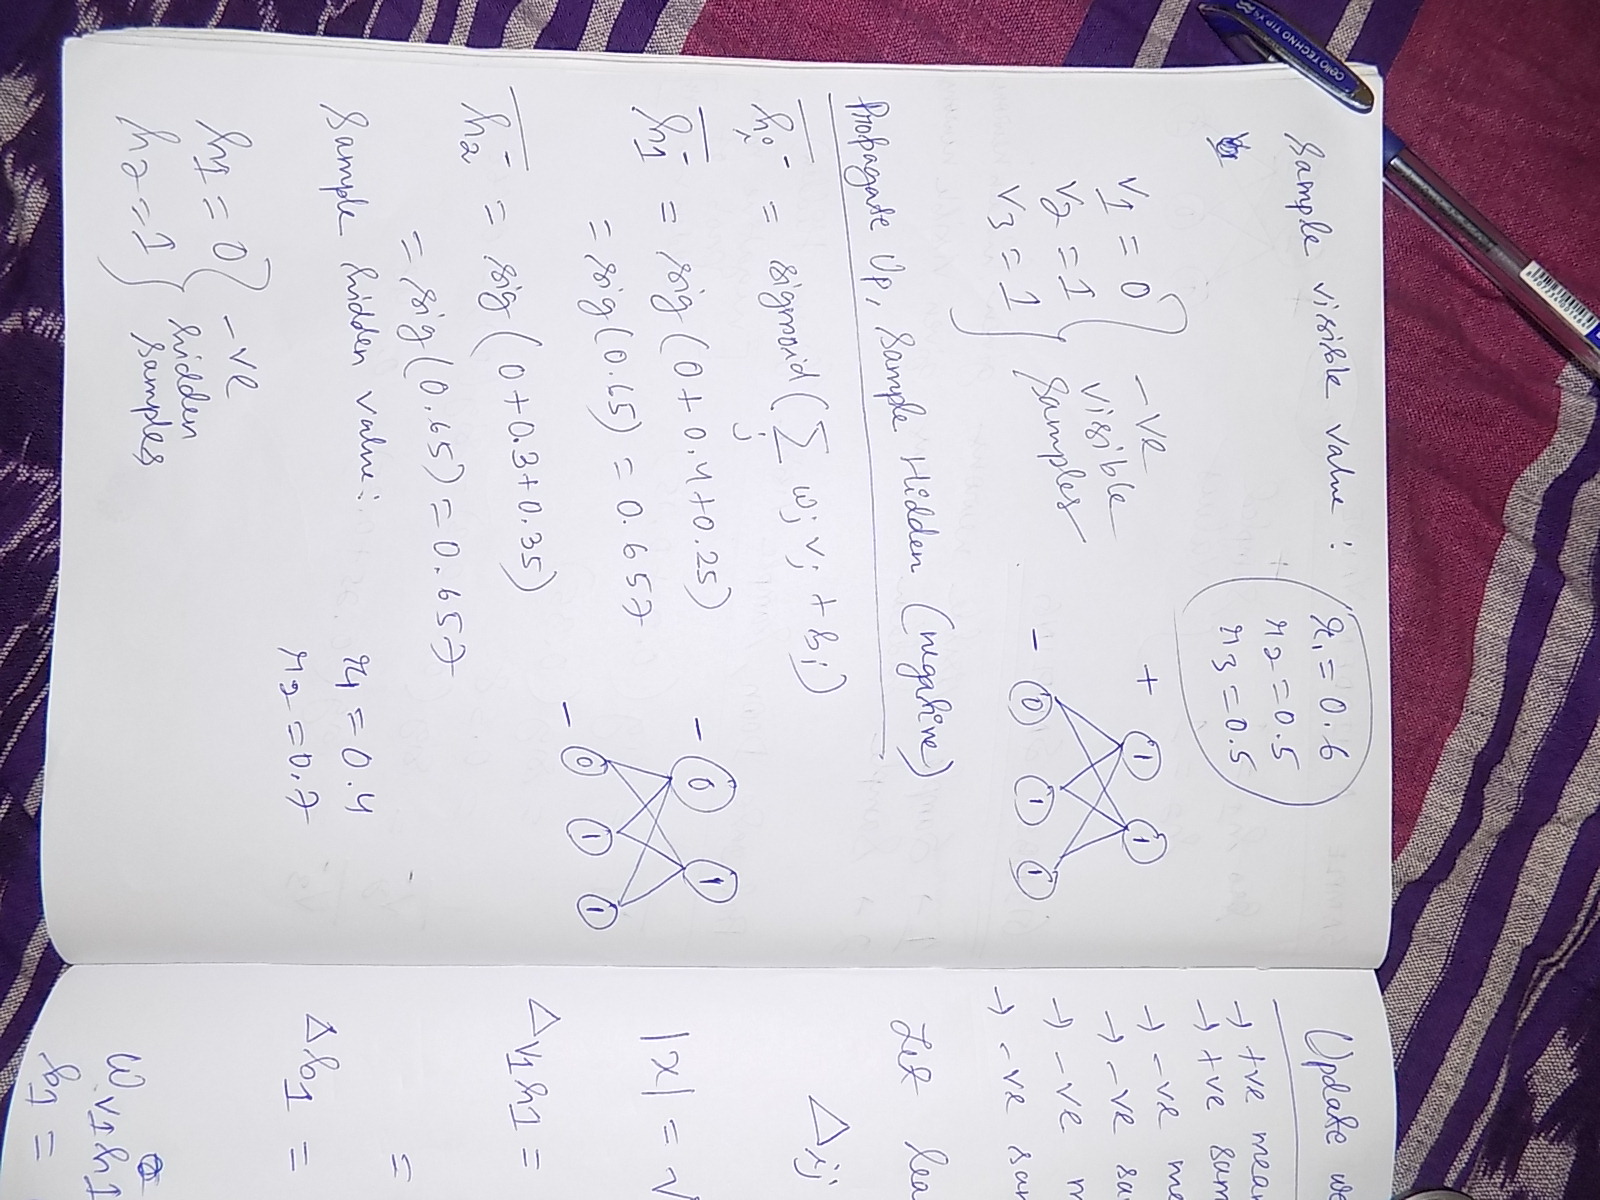 Sample visible value :
r1 = 0.6
r2 = 0.5
r3 = 0.5
v1 = 0
v2 = 1
v3 = 1
-ve
visible
samples
+
1 1
-
0 1 1
Propagate Up, Sample Hidden (negative)
h̅i⁻ = sigmoid( Σj wj vj + bi )
h̅1⁻ = sig( 0 + 0.4 + 0.25)
= sig( 0.65) = 0.657
h̅2⁻ = sig ( 0 + 0.3 + 0.35)
= sig( 0.65) = 0.657
-
0 1
-
0 1 1
Sample hidden value :
r1 = 0.4
r2 = 0.7
h1 = 0
h2 = 1
-ve
hidden
samples
Update
→ +ve
→ +ve
→ -ve
→ -ve
→ -ve
→ -ve
Let
Δij
|x| = √
Δv1h1 =
=
Δb1 =
Wv1h1
b1 =
Cello TECHNOTIP